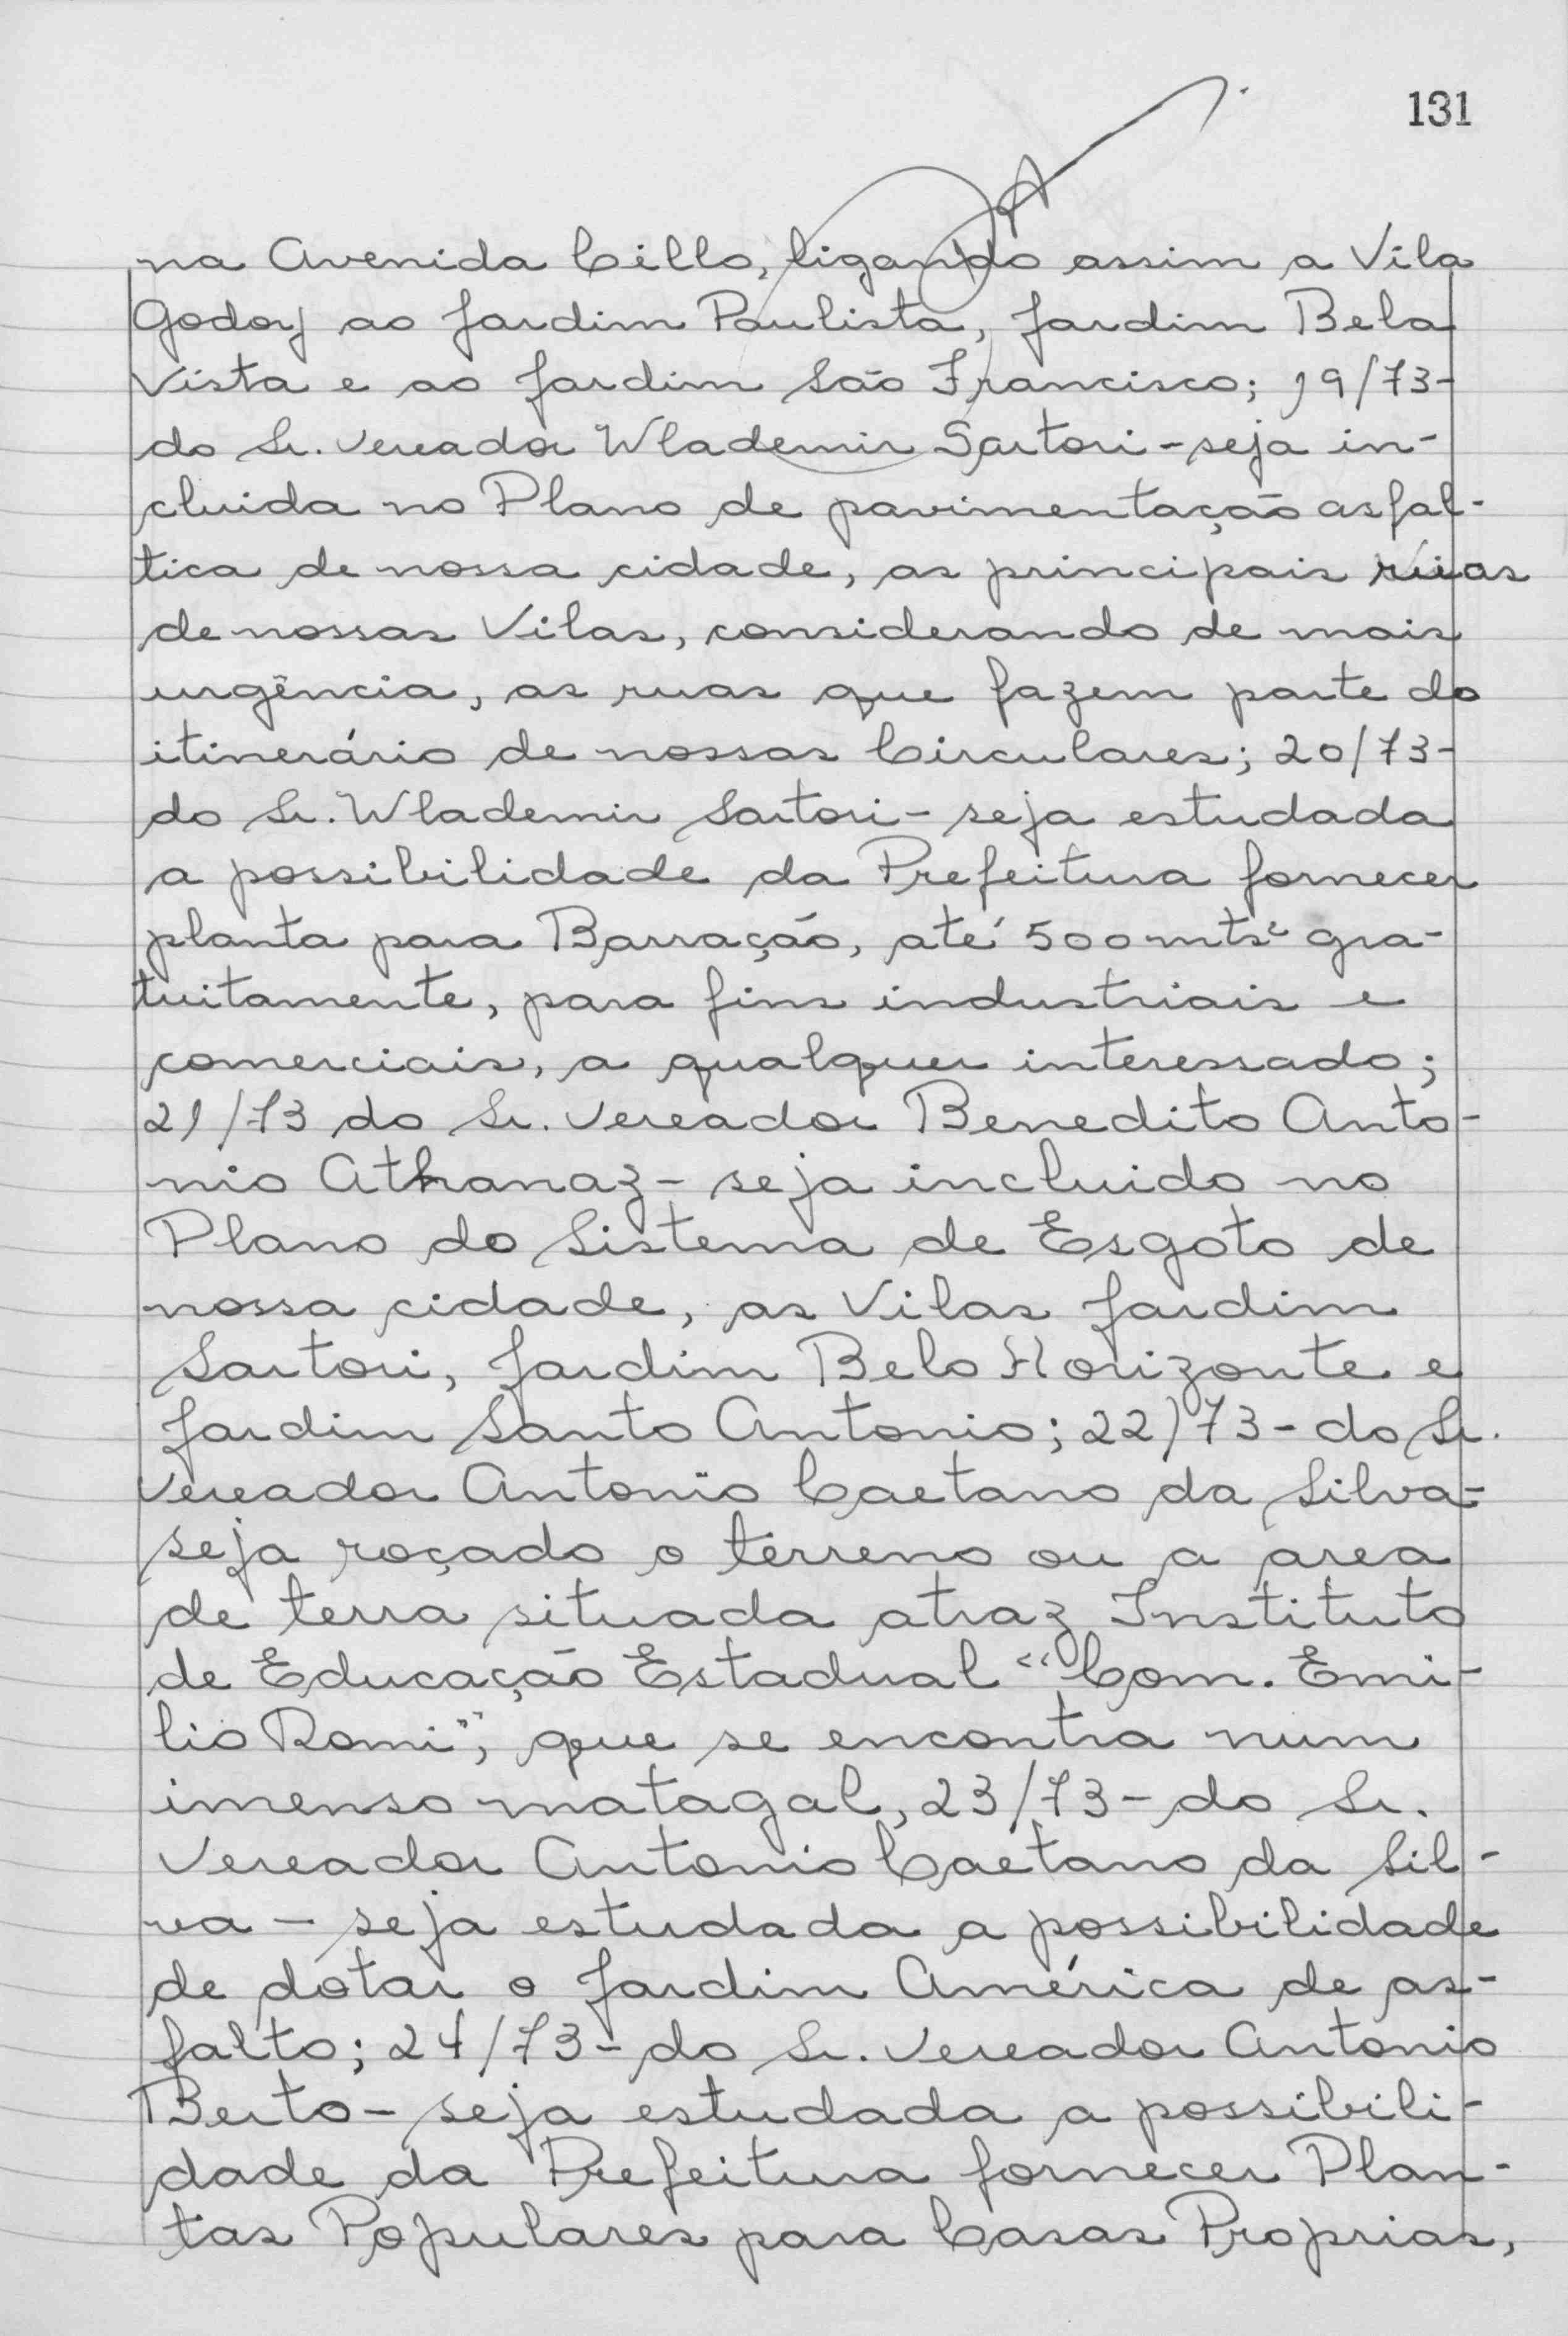 131
na Avenida Cillo, ligando assim a Vila
Godoy ao Jardim Paulista, Jardim Bela
Vista e ao Jardim São Francisco; 19/73-
do Sr. Vereador Wlademir Sartori - seja in-
cluida no Plano de pavimentação asfal-
tica de nossa cidade, as principais ruas
de nossas Vilas, considerando de mais
urgência, as ruas que fazem parte do
itinerário de nossas Circulares; 20/73-
do Sr. Wlademir Sartori - seja estudada
a possibilidade da Prefeitura fornecer
planta para Barração, até 500 mts² gra-
tuitamente, para fins industriais e
comerciais, a qualquer interessado;
21/73 do Sr. Vereador Benedito Anto-
nio Athanaz - seja incluido no
Plano do Sistema de Esgoto de
nossa cidade, as Vilas Jardim
Sartori, Jardim Belo Horizonte e
Jardim Santo Antonio; 22/73 - do Sr.
Vereador Antonio Caetano da Silva -
seja roçado o terreno ou a area
de terra situada atraz Instituto
de Educação Estadual "Com. Emi-
lio Romi", que se encontra num
imenso matagal, 23/73 - do Sr.
Vereador Antonio Caetano da Sil-
va - seja estudada a possibilidade
de dotar o Jardim América de as-
falto; 24/73 - do Sr. Vereador Antonio
Berto - seja estudada a possibili-
dade da Prefeitura fornecer Plan-
tas Populares para Casas Proprias,